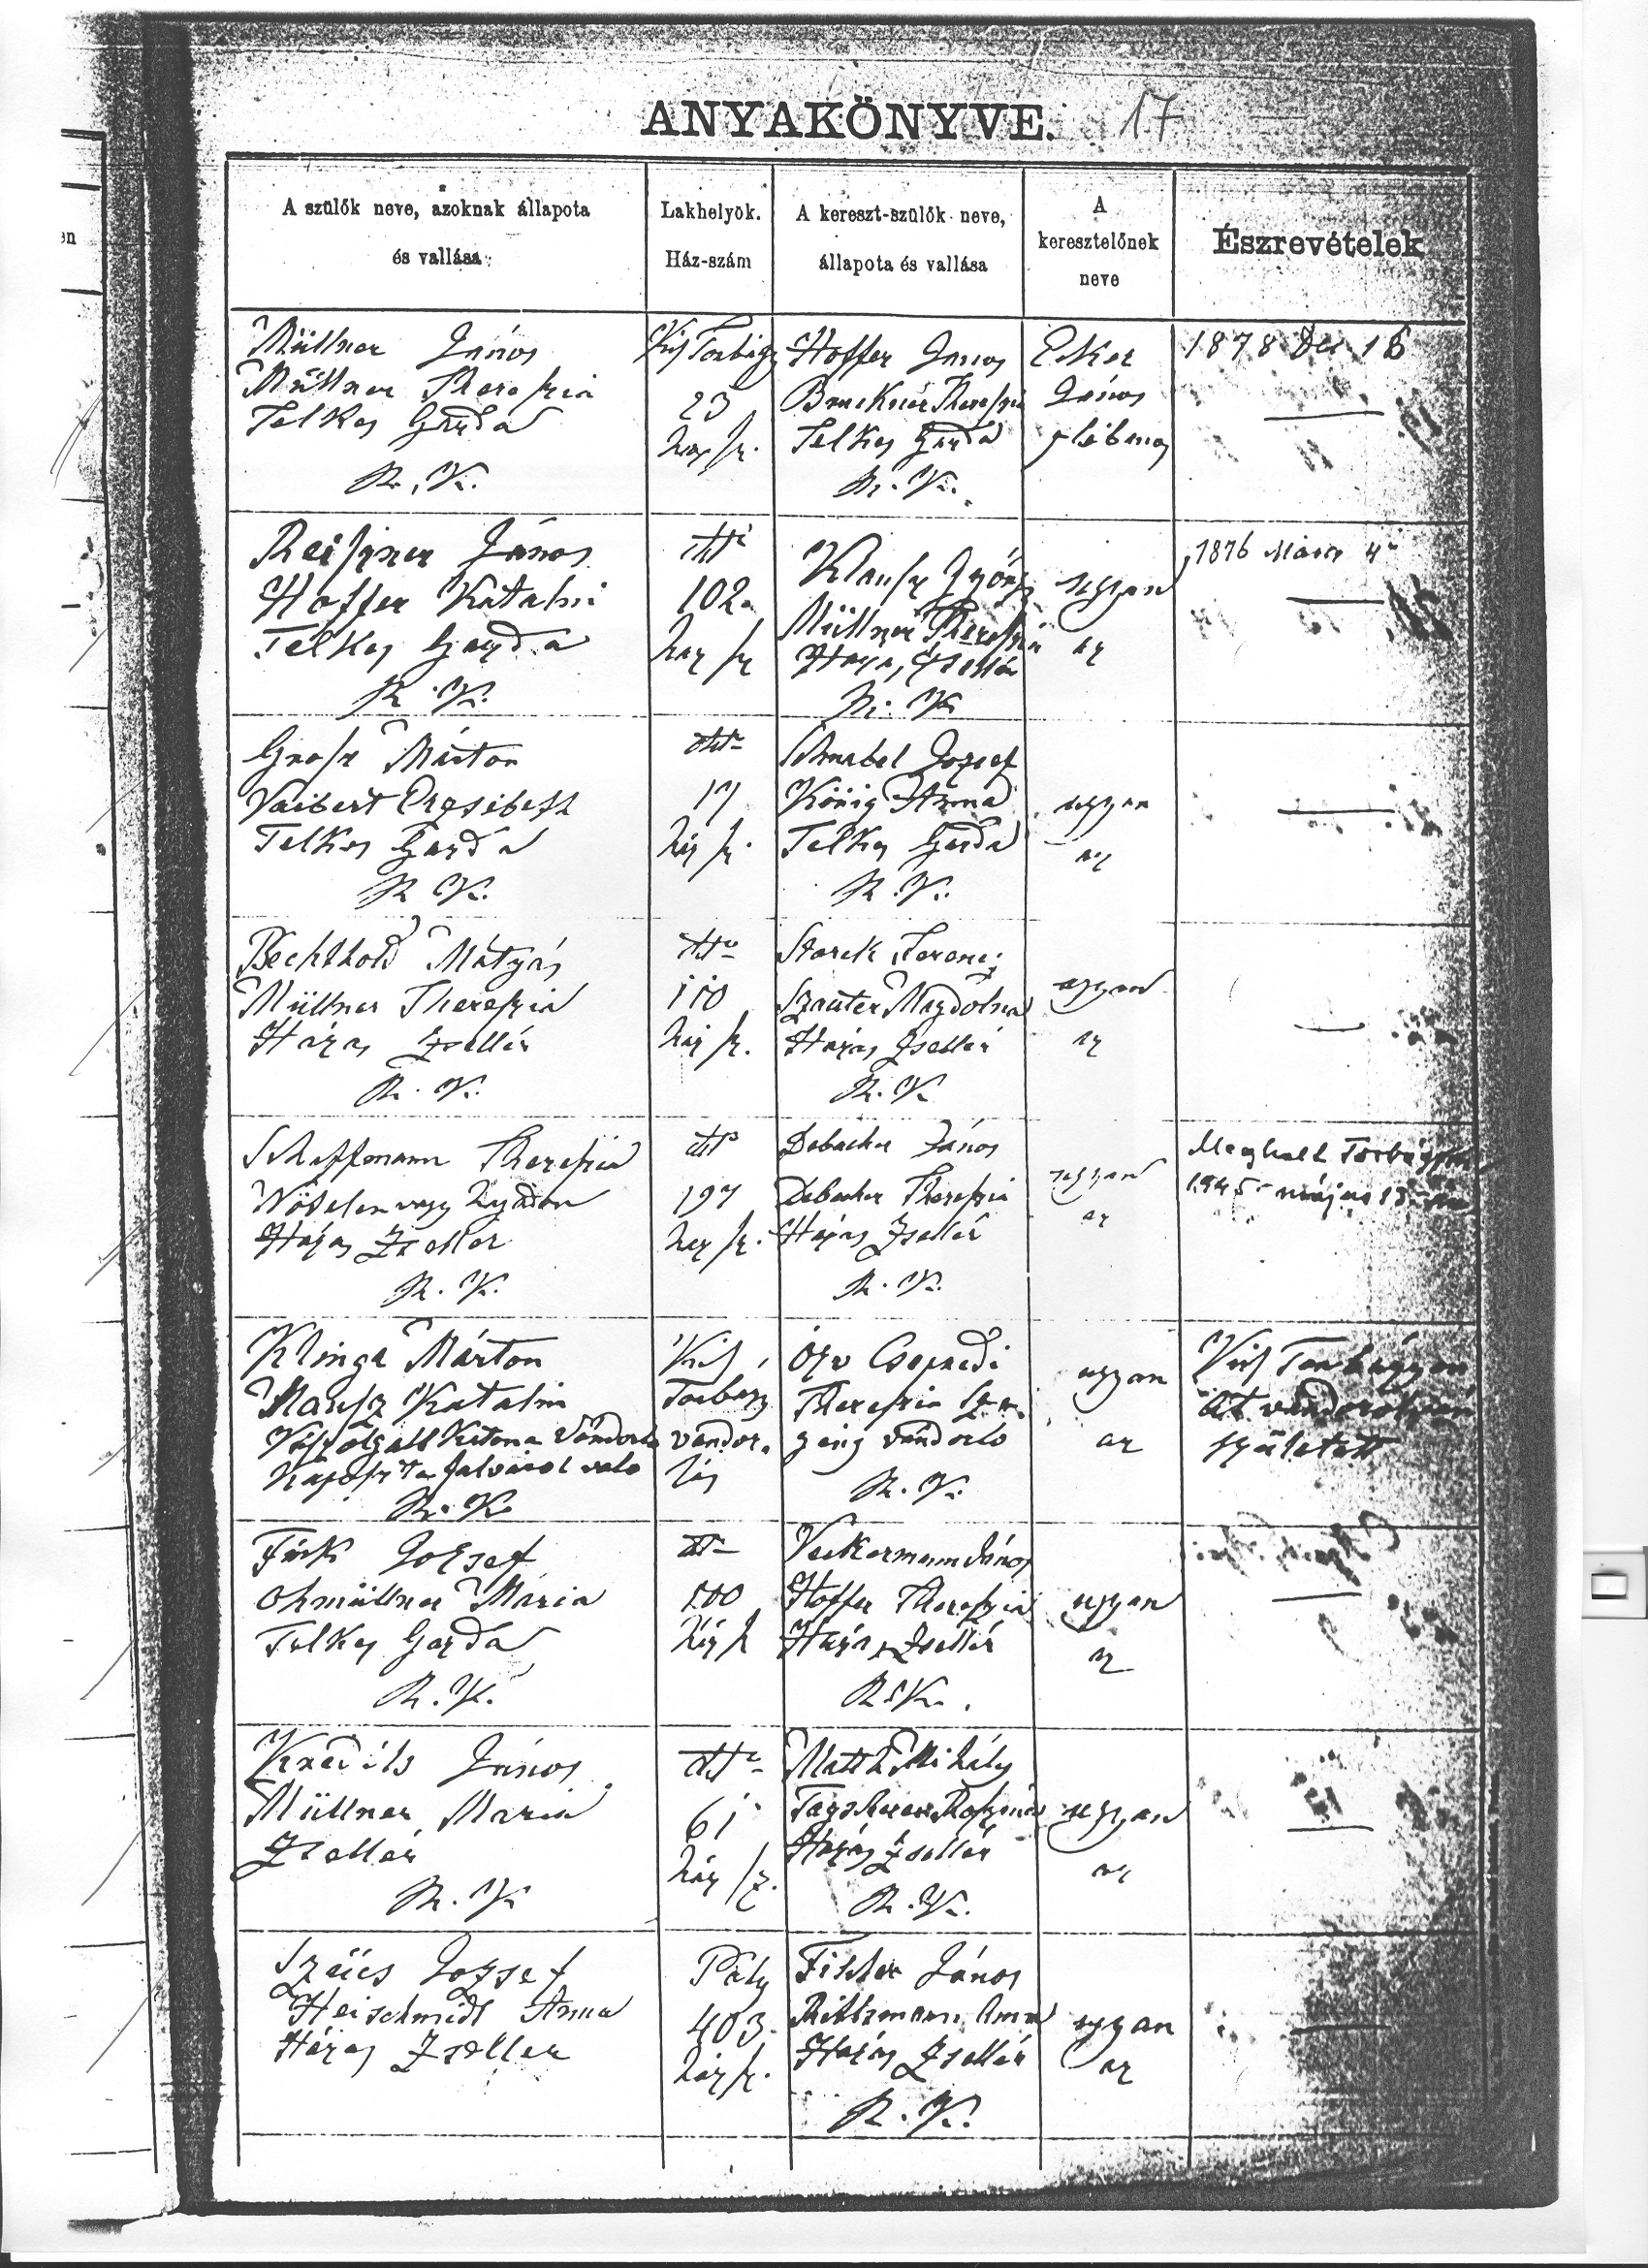 ANYAKÖNYVE. 17
A szülők neve, azoknak állapota
és vallása
Lakhelyök.
Ház-szám
A kereszt-szülők neve,
állapota és vallása
A
keresztelőnek
neve
Észrevételek
en
Müllner János
Müllner Therefzia
Telkes Gazda
R. K.
Kis Torbágy
23
ház sz.
Hoffer János
Bruckner Therefzia
Telkes Gazda
R. K.
Ecker
János
plébános
1878 Dec 16
Reiszner János
Hoffer Katalin
Telkes Gazda
R. K.
dtto
102.
ház sz
Klausz György
Müllner Therefzia
Házas Zsellér
R. K.
ugyan
az
1876 Márcz 4
Grosz Márton
Vaibert Erzsébeth
Telkes Gazda
R. K.
dtto
17
ház sz.
Schnabel Jozsef
König Anna
Telkes Gazda
R. K.
ugyan
az
Bechthold Mátyás
Müllner Therefzia
Házas Zsellér
R. K.
dtto
110
ház sz.
Starck Ferencz
Szauter Magdolna
Házas Zsellér
R. K.
ugyan
az
Schaffmann Therefzia
Nőtelen vagy hajadon
Házas Zsellér
R. K.
dtto
197
ház sz.
Debacher János
Debacher Therefzia
Házas Zsellér
R. K.
ugyan
az
Meghalt Torbágyon
1945 május 15-én
Klinga Márton
Mausz Katalin
Kiszolgált Katona Vándorló
való
R. K.
Kis
Torbágy
vándor.
lás
Özv Csepredi
Therefzia
vándorló
R. K.
ugyan
az
Kis Torbágyon
át vándorolván
született
Fürk Jozsef
Ohmüllner Mária
Telkes Gazda
R. K.
dtto
100
ház sz
Veckermann János
Hoffer Therefzia
Házas Zsellér
R. K.
ugyan
az
János
Müllner Maria
Zsellér
R. K
dtto
61
ház sz.
Matth Mihály
Tagscherer Rofzina
Házas Zsellér
R. K.
ugyan
az
Szücs Jozsef
Heischmidt Anna
Házas Zsellér
Páty
403.
ház sz.
Fischer János
Anna
Házas Zsellér
R. K.
ugyan
az